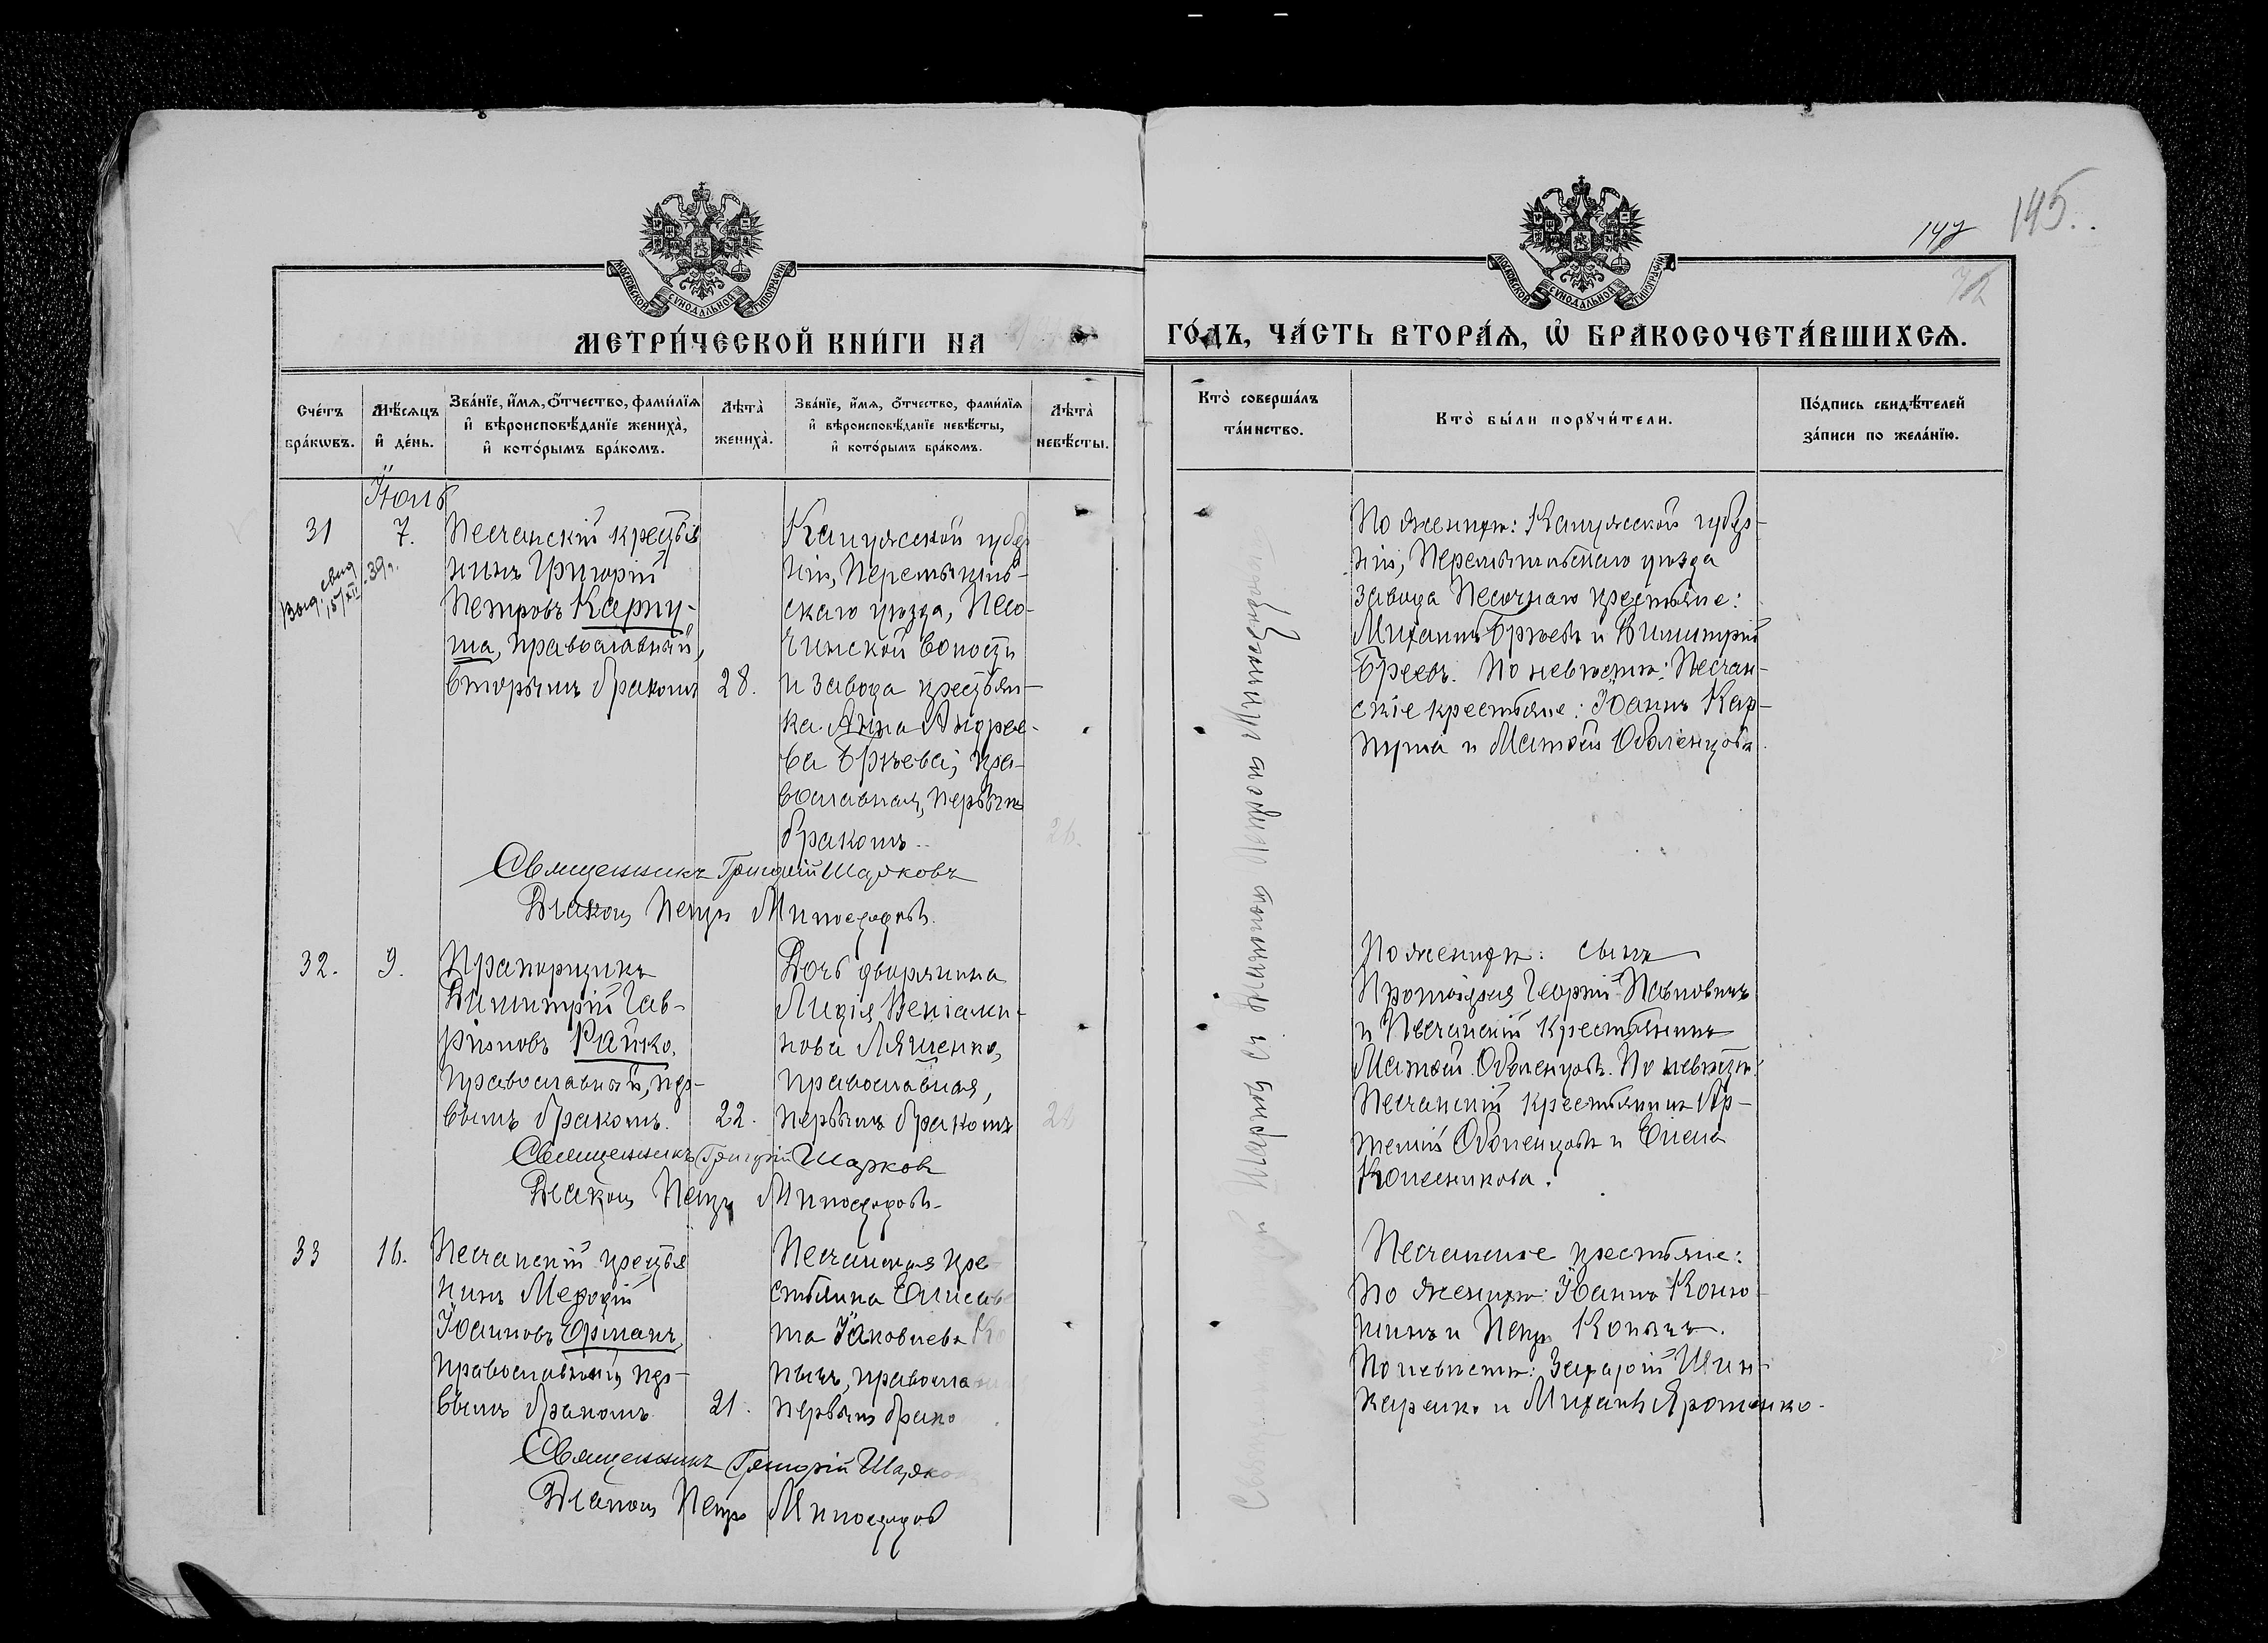 147
145.
МОСКОВСКОЙ СѴНОДАЛЬНОЙ ТИПОГРАФІИ
МОСКОВСКОЙ СѴНОДАЛЬНОЙ ТИПОГРАФІИ
МЕТРИ́ЧЕСКОЙ КНИ́ГИ НА
ГО́ДЪ, ЧА́СТЬ ВТОРА́Я, Ѡ҆ БРАКОСОЧЕТА́ВШИХСЯ.
Сче́тъ бра́кωвъ.
Мѣ́сяцъ и҆ де́нь.
Зва́нїе, и҆́мя, ѻ҆́тчество, фами́лїя
и҆ вѣроисповѣ́данїе жениха̀,
и҆ кото́рымъ бра́комъ.
Лѣта̀ жениха̀.
Зва́нїе, и҆́мя, ѻ҆́тчество, фами́лїя
и҆ вѣроисповѣ́данїе невѣ́сты,
и҆ кото́рымъ бра́комъ.
Лѣта̀ невѣ́сты.
Кто̀ соверша́лъ
та́инство.
Кто̀ бы́ли порꙋчи́тели.
По́дпись свидѣ́телей
за́писи по жела́нїю.
Іюль
31
7.
Выд. свид.
15/XII 39 г.
Песчанскій крестья
нинъ Григорій
Петровъ Карпу-
ша, православный,
вторымъ бракомъ
28.
Калужской губер
ніи, Перемышль-
скаго уѣзда, Песо-
чинской волости
и завода крестьян-
ка Анна Андрее-
ва Брѣева, пра-
вославная, первымъ
бракомъ.
26.
По женихѣ: Калужской губер-
ніи, Перемышльскаго уѣзда
завода Песочнаго крестьяне:
Михаилъ Брѣевъ и Димитрій
Брѣевъ. По невѣстѣ: Песчан-
скіе крестьяне: Іоаннъ Кар-
пуша и Матѳей Оболенцовъ.
Священникъ Григорій Шарковъ
Діаконъ Петръ Милосердовъ.
32.
9.
Прапорщикъ
Димитрій Гав-
ріиловъ Райко,
православный, пер-
вымъ бракомъ.
22.
Дочь дворянина
Лидія Веніами-
нова Ляшенко,
православная,
первымъ бракомъ
22
По женихѣ: сынъ
Протоіерея Георгій Павловичъ
и Песчанскій крестьянинъ
Матѳей Оболенцовъ. По невѣстѣ:
Песчанскій крестьянинъ Ар-
темій Оболенцовъ и Елена
Колесникова.
Священникъ Григорій Шарковъ
Діаконъ Петръ Милосердовъ
33
16.
Песчанскій крестья
нинъ Меѳодій
Іоанновъ Ерманъ,
православный, пер-
вымъ бракомъ
21.
Песчанская кре
стьянка Елисаве
та Іаковлева
православ
первымъ брако
Песчанскіе крестьяне:
по женихѣ: Іоаннъ
и Петръ
По невѣстѣ: Захарій Шин-
каренко и Михаилъ Ярошенко.
Священникъ Григорій Шарков
Діаконъ Петръ Милосердов